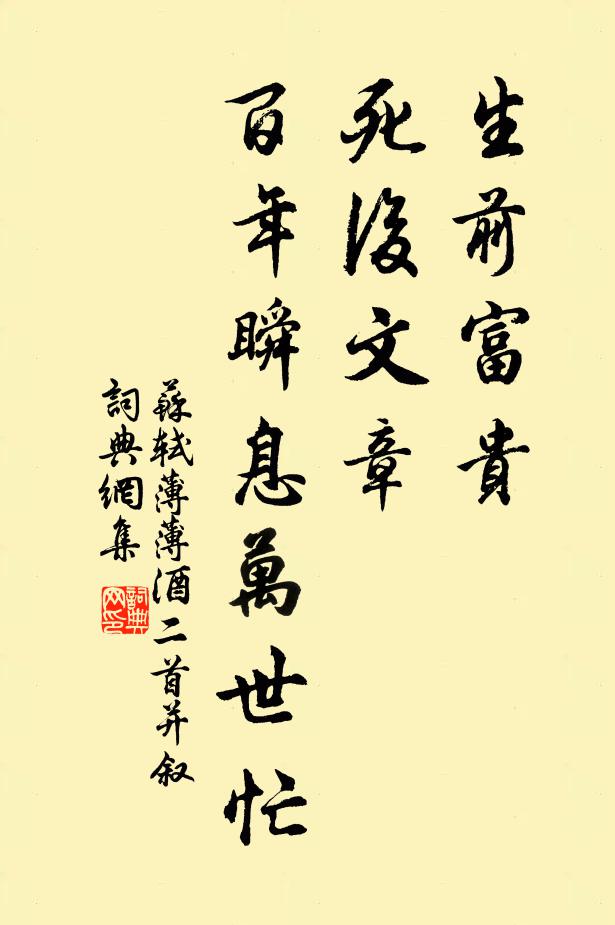 生前富貴
死後文章
百年瞬息萬世忙
蘇軾薄薄酒二首并叙
詞典網集
詞典网印